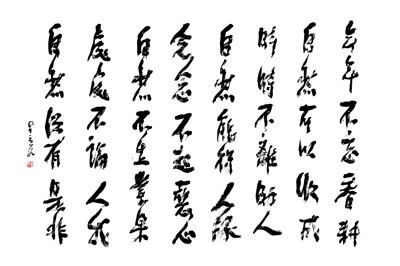 年年不忘春耕
自然以收成
時時不離人
自然能得人緣
念念不起惡心
自然不生業果
處處不論人我
自然沒有是非